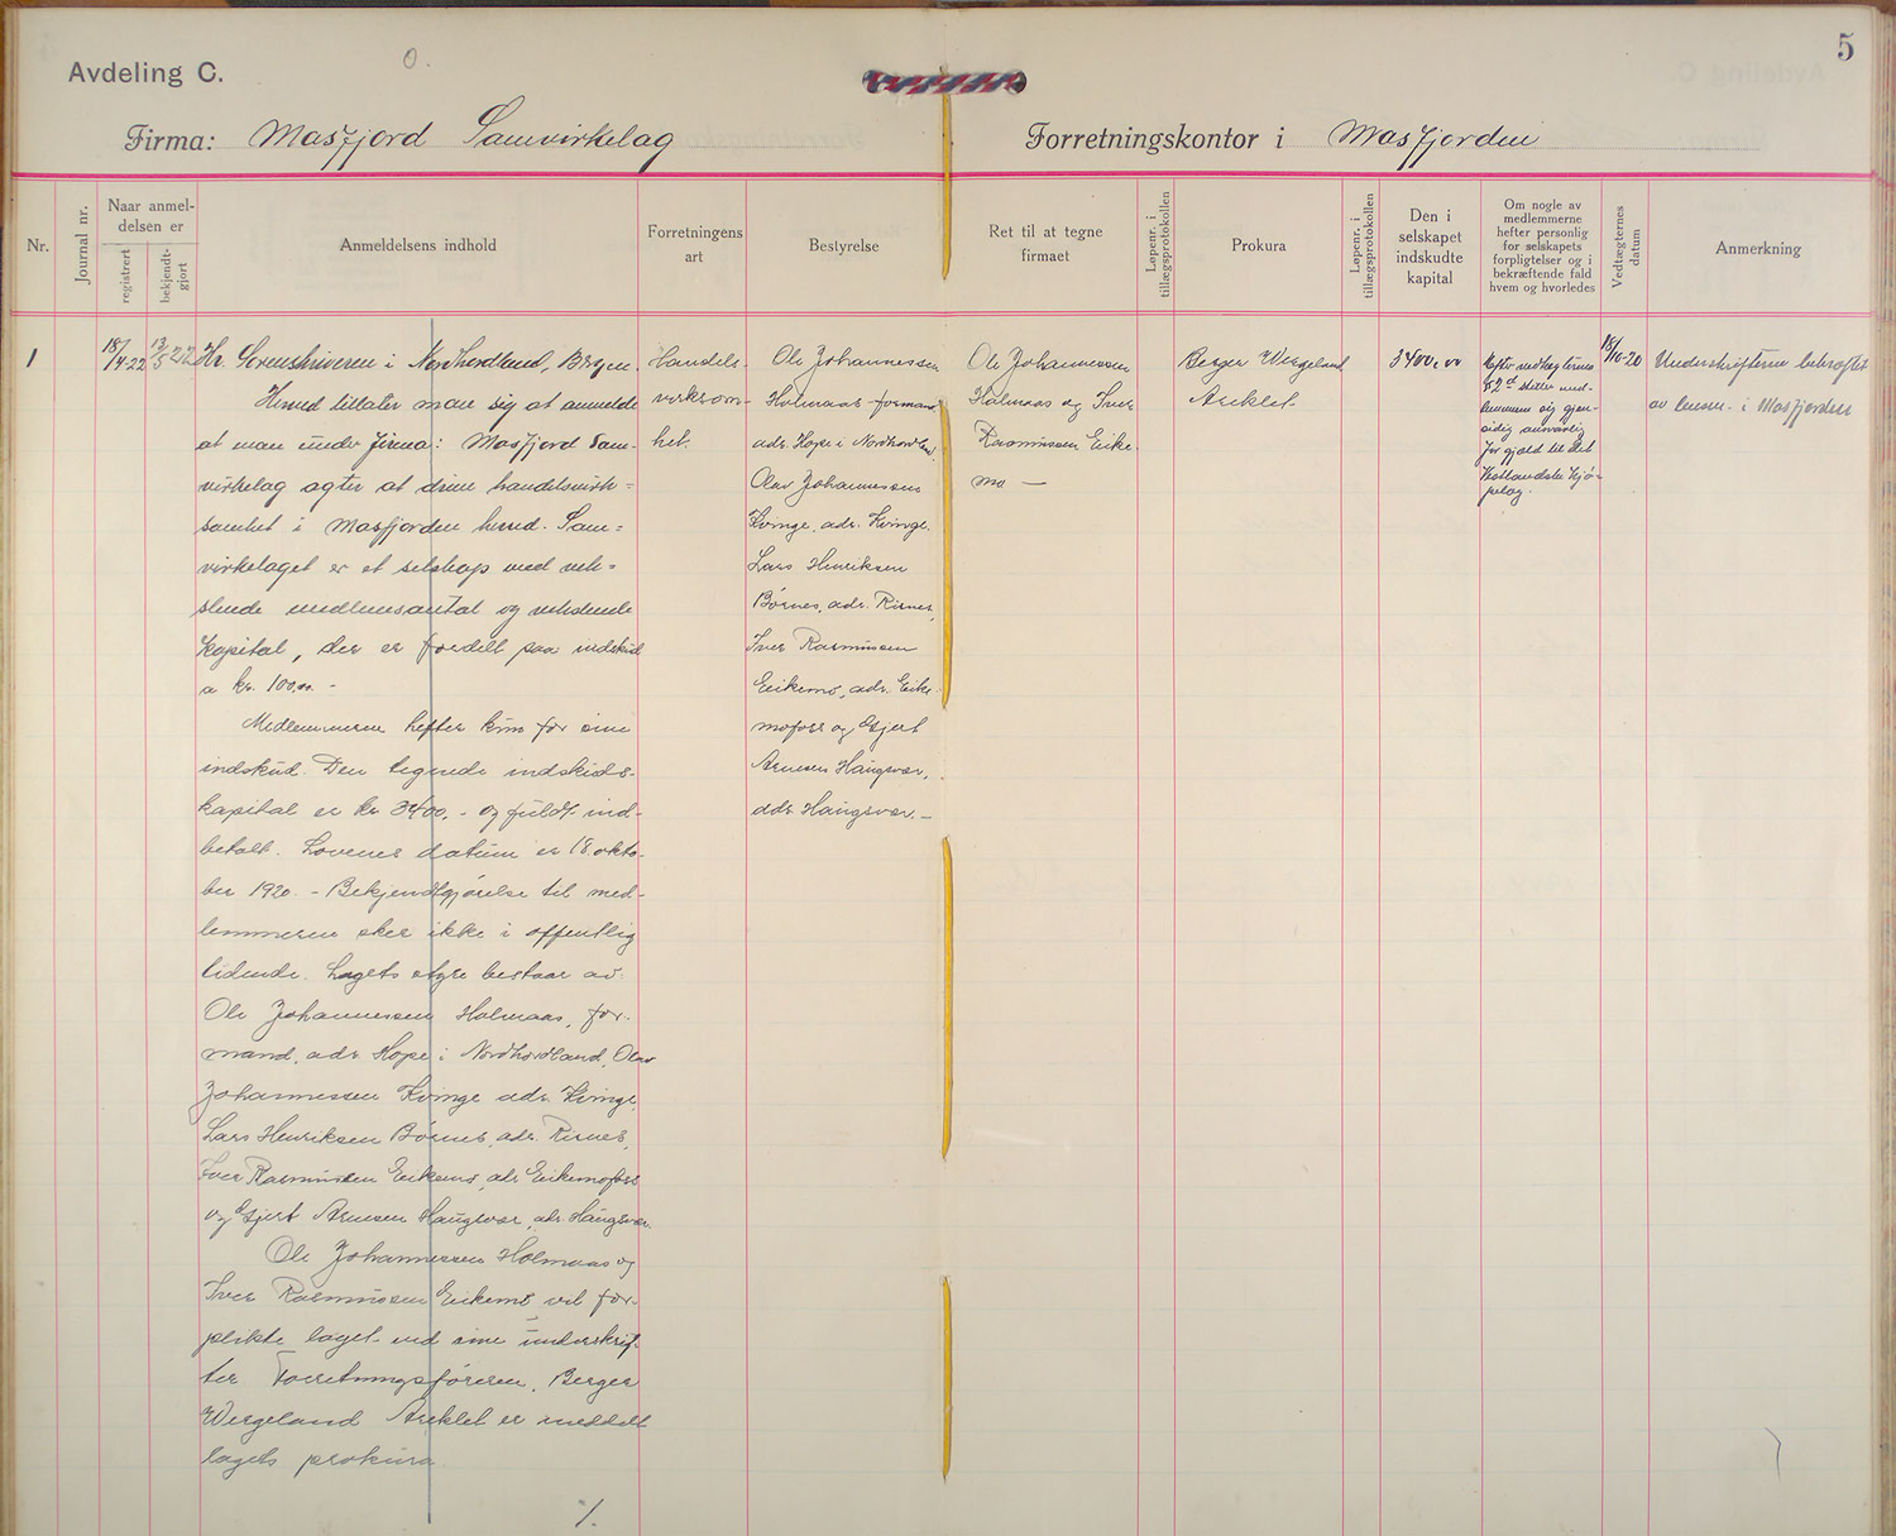 5
Avdeling C.
O.
Firma: Masfjord Samvirkelag
Forretningskontor i Masfjorden
Nr.
Journal nr.
Naar anmel-
delsen er
registrert
bekjendt-
gjort
Anmeldelsens indhold
Forretningens
art
Bestyrelse
Ret til at tegne
firmaet
Løpenr. i
tillægsprotokollen
Prokura
Løpenr. i
tillægsprotokollen
Den i
selskapet
indskudte
kapital
Om nogle av
medlemmerne
hefter personlig
for selskapets
forpligtelser og i
bekræftende fald
hvem og hvorledes
Vedtægternes
datum
Anmerkning
1
18/4-22
13/5 22
Hr. Sorenskriveren i Nordhordland, Bergen.
Herved tillater man sig at anmelde
at man under firma: Masfjord Sam-
virkelag agter at drive handelsvirk=
somhet i Masfjorden herred. Sam=
virkelaget er et selskap med vek=
slende medlemsantal og vekslende
kapital, der er fordelt paa indskud
a kr. 100,00. -
Medlemmerne hefter kun for sine
indskud. Den tegnede indskuds-
kapital er kr 3400. - og fuldt ind-
betalt. Lovenes datum er 18. okto-
ber 1920. - Bekjendtgjørelse til med-
lemmerne sker ikke i offentlig
tidende. Lagets styre bestaar av:
Ole Johannessen Holmaas, for-
mand, adr. Hope i Nordhordland, Olav
Johannessen Kvinge adr. Kvinge,
Lars Henriksen Børnes, adr. Risnes,
Iver Rasmussen Eikemo, adr. Eikemofoss
og Gjert Arnesen Haugsvær, adr. Haugsvær.
Ole Johannessen Holmaas og
Iver Rasmussen Eikemo vil for-
plikte laget ved sine underskrif-
ter Forretningsføreren, Berger
Wergeland Areklet er meddelt
lagets prokura
./.
Handels-
virksom-
het.
Ole Johannessen
Holmaas - formand,
adr. Hope i Nordhordland,
Olav Johannessen
Kvinge, adr. Kvinge.
Lars Henriksen
Børnes, adr. Risnes,
Iver Rasmussen
Eeikemo, adr. Eike-
mofoss og Gjert
Arnesen Haugsvær,
adr. Haugsvær. -
Ole Johannessen
Holmaas og Iver
Rasmussen Eeike-
mo —
Berger Wergeland
Areklet.
3400,00
Efter vedtægternes
§ 2 d stiller med-
lemmene sig gjen-
sidig ansvarlig
for gjæld til Det
Vestlandske Kjø-
pelag.
18/10-20
Underskrifterne bekræftet
av lensm. i Masfjorden